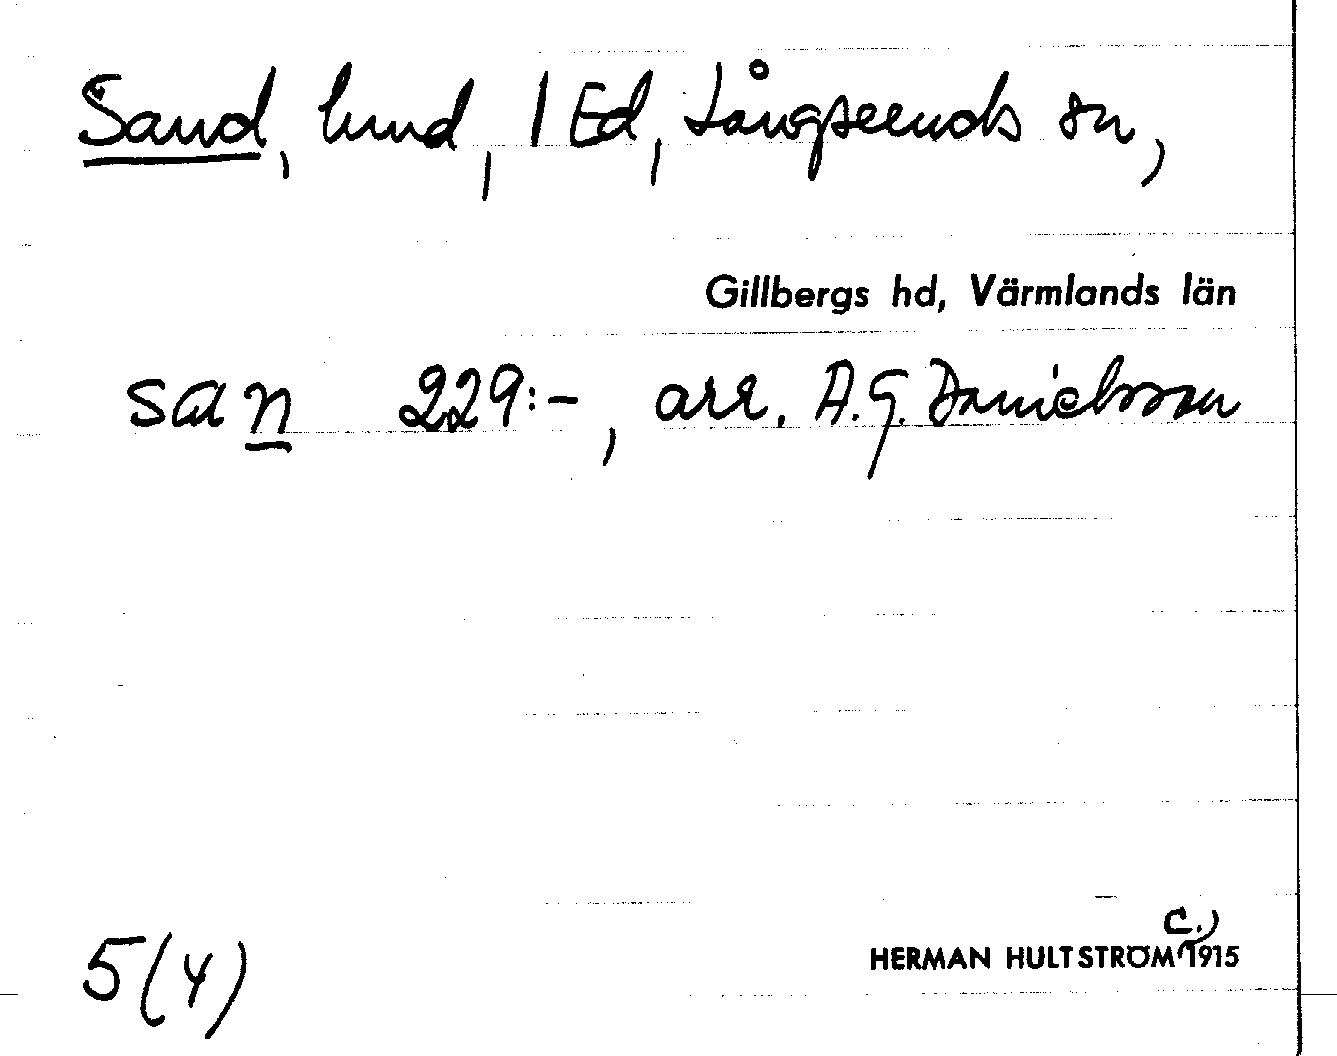 Sand, hmd, 1 Ed, Långseruds sn,
Gillbergs hd, Värmlands län
san 229:-, arr. A.G. Danielsson
5(4)
HERMAN HULTSTRÖM (C.) 1915